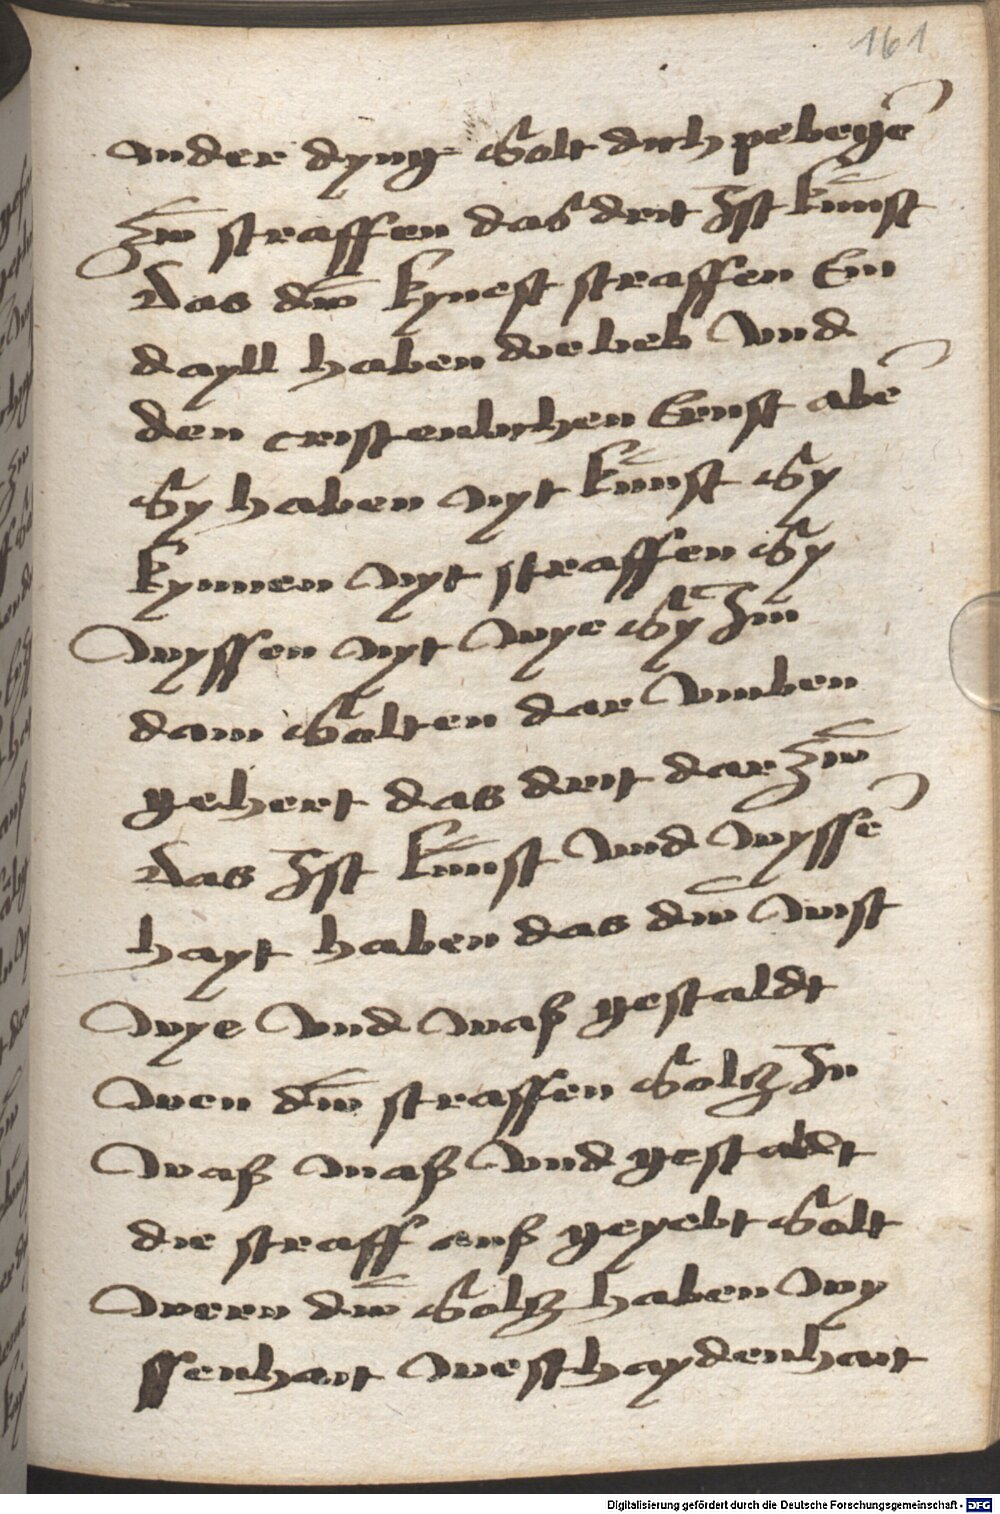 161
ander dyng Solt dich pebegē
zw̄ straffen das drit Ist kunst
Das dw̄ kynest straffen Ein
dayll haben die lieb Vnd
den cristenlichen Ernst abē
Sy haben nyt kunst Sy
kynnen nyt straffen Sy
wyssen nyt wye Sy Im
dam Solten dar Vmben
gehert das drit dar zw̄
Das Ist kunst Vnd wysse
hayt haben das dw̄ wist
wye Vnd waß gestaldt
wen dw̄ straffen Solz In
waß maß Vnd gestaldt
die straff auß geyebt Solt
wern dw̄ Solz haben wy
ssenhait westhaydenhait
Digitalisierung gefördert durch die Deutsche Forschungsgemeinschaft - DFG